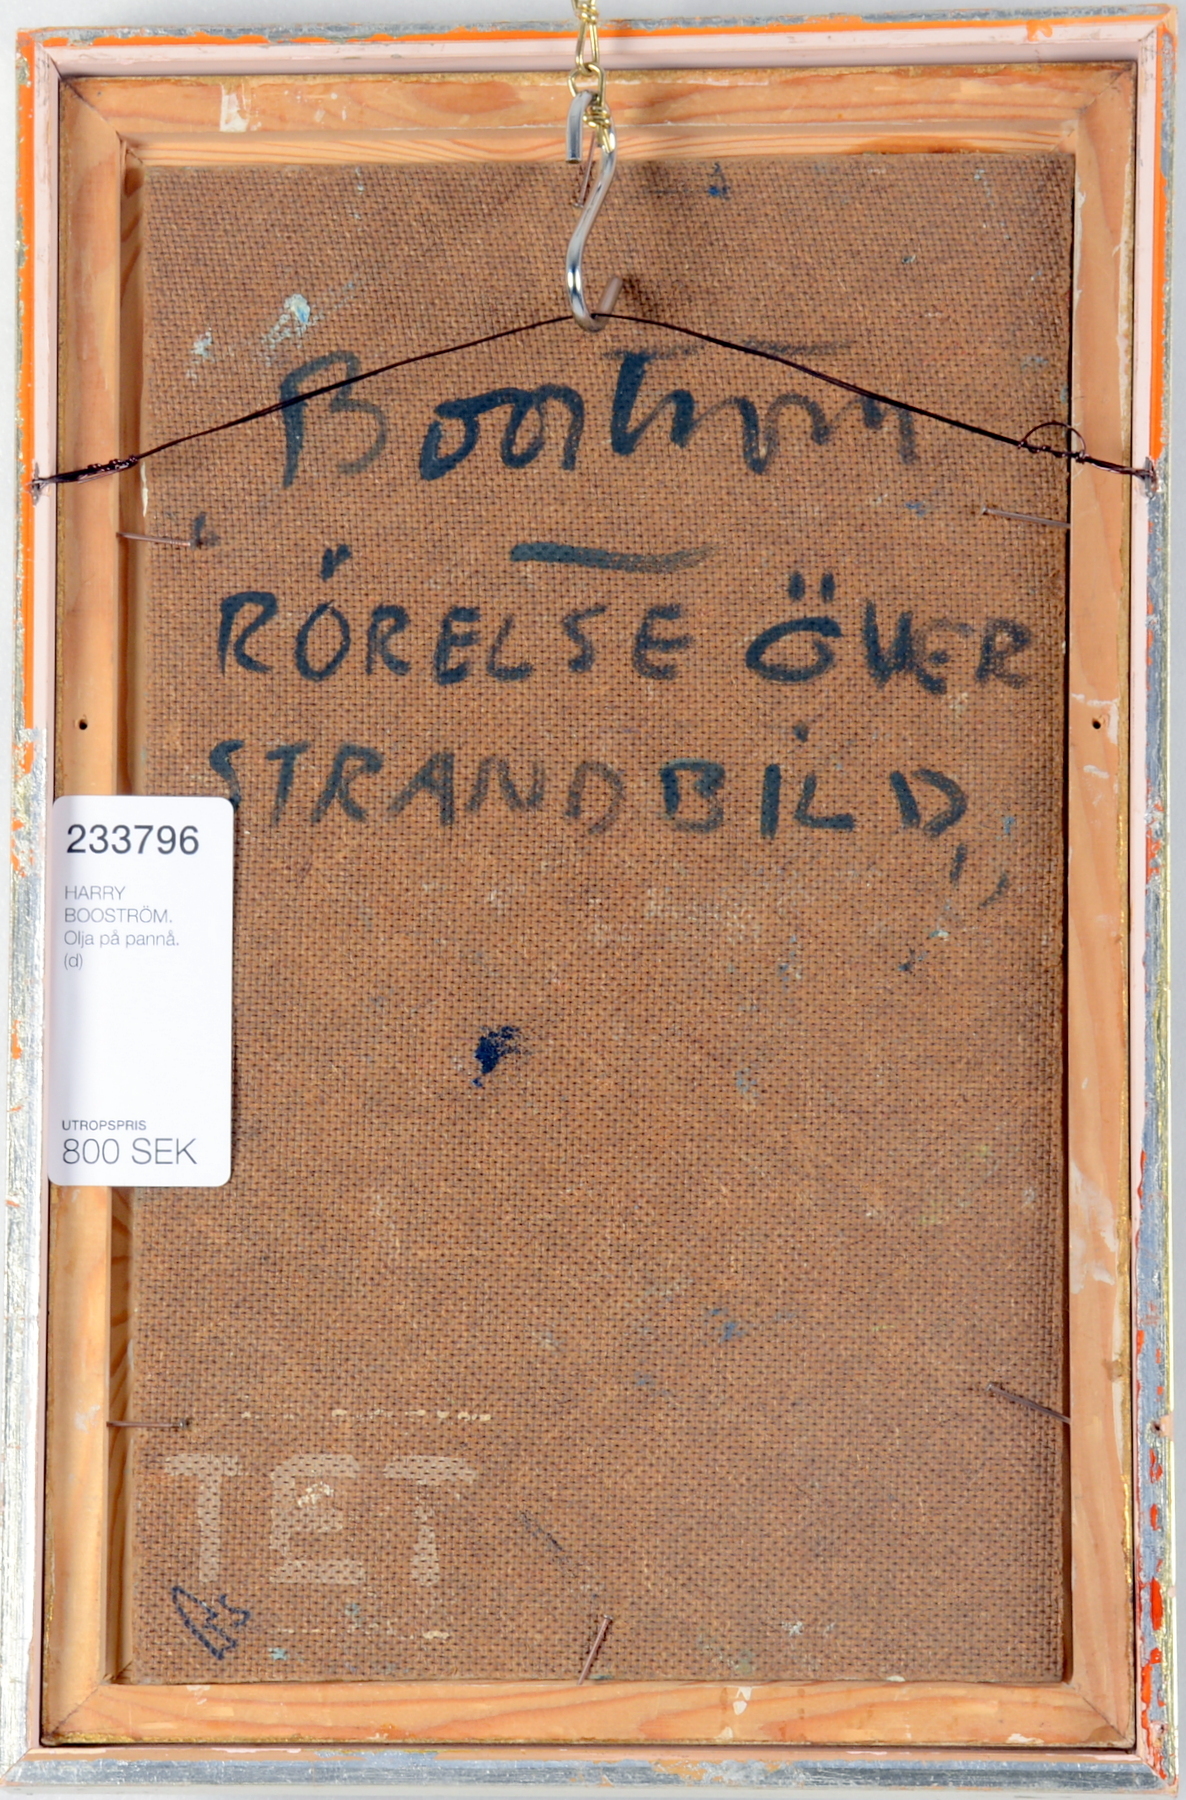 Booström
„RÖRELSE ÖVER
STRANDBILD„
233796
HARRY
BOOSTRÖM.
Olja på pannå.
(d)
UTROPSPRIS
800 SEK
TET